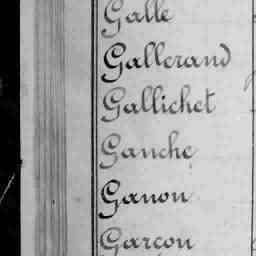 Galle
Gallerand
Gallichet
Ganche
Ganon
Garçon